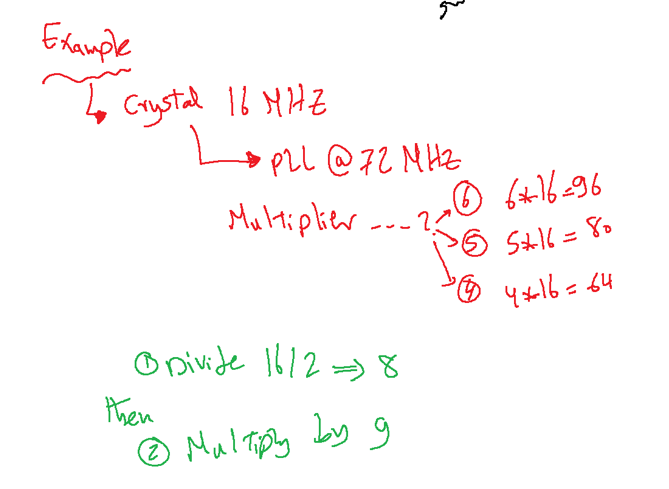 Example
Crystal 16 MHZ
PLL @ 72 MHZ
Multiplier --- ? 6 6*16=96
5 5*16 = 80
4 4*16 = 64
① Divide 16/2 ⇒ 8
then
② Multiply by 9